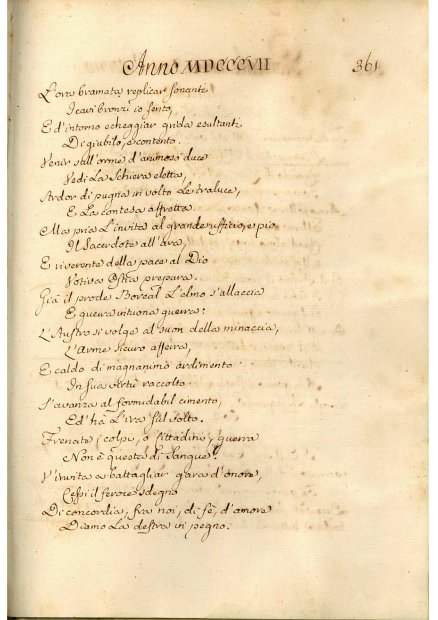 Anno MDCCCVII
361
L'ora bramata replicar sonanti
I cavi bronzi io sento,
E d'intorno echeggiar grida esultanti
Di giubilo, e contento.
Venir sull'orme d'animoso duce
Vedi La Schiera eletta,
Ardor di pugna in volto Le traluce,
E La contesa affretta.
Ma pria L'invita al grande uffizio, e pio
Il Sacerdote all'ara,
E riverente della pace al Dio
Votiva Ostia prepara.
Già il prode Boreal L'elmo s'allaccia
E guerra intuona guerra:
L'Austro si volge al suon della minaccia,
L'Arme sicuro afferra,
E caldo di magnanimo ardimento
In sua virtù raccolto
S'avanza al formidabil cimento,
Ed' ha L'ira sul volto.
Frenate i colpi, o Cittadini, guerra
Non è questa di Sangue:
V'invita a battagliar gara d'onore,
Cessi il feroce sdegno
Di concordia, fra noi, di fè, d'amore
Diamo La destra in pegno.